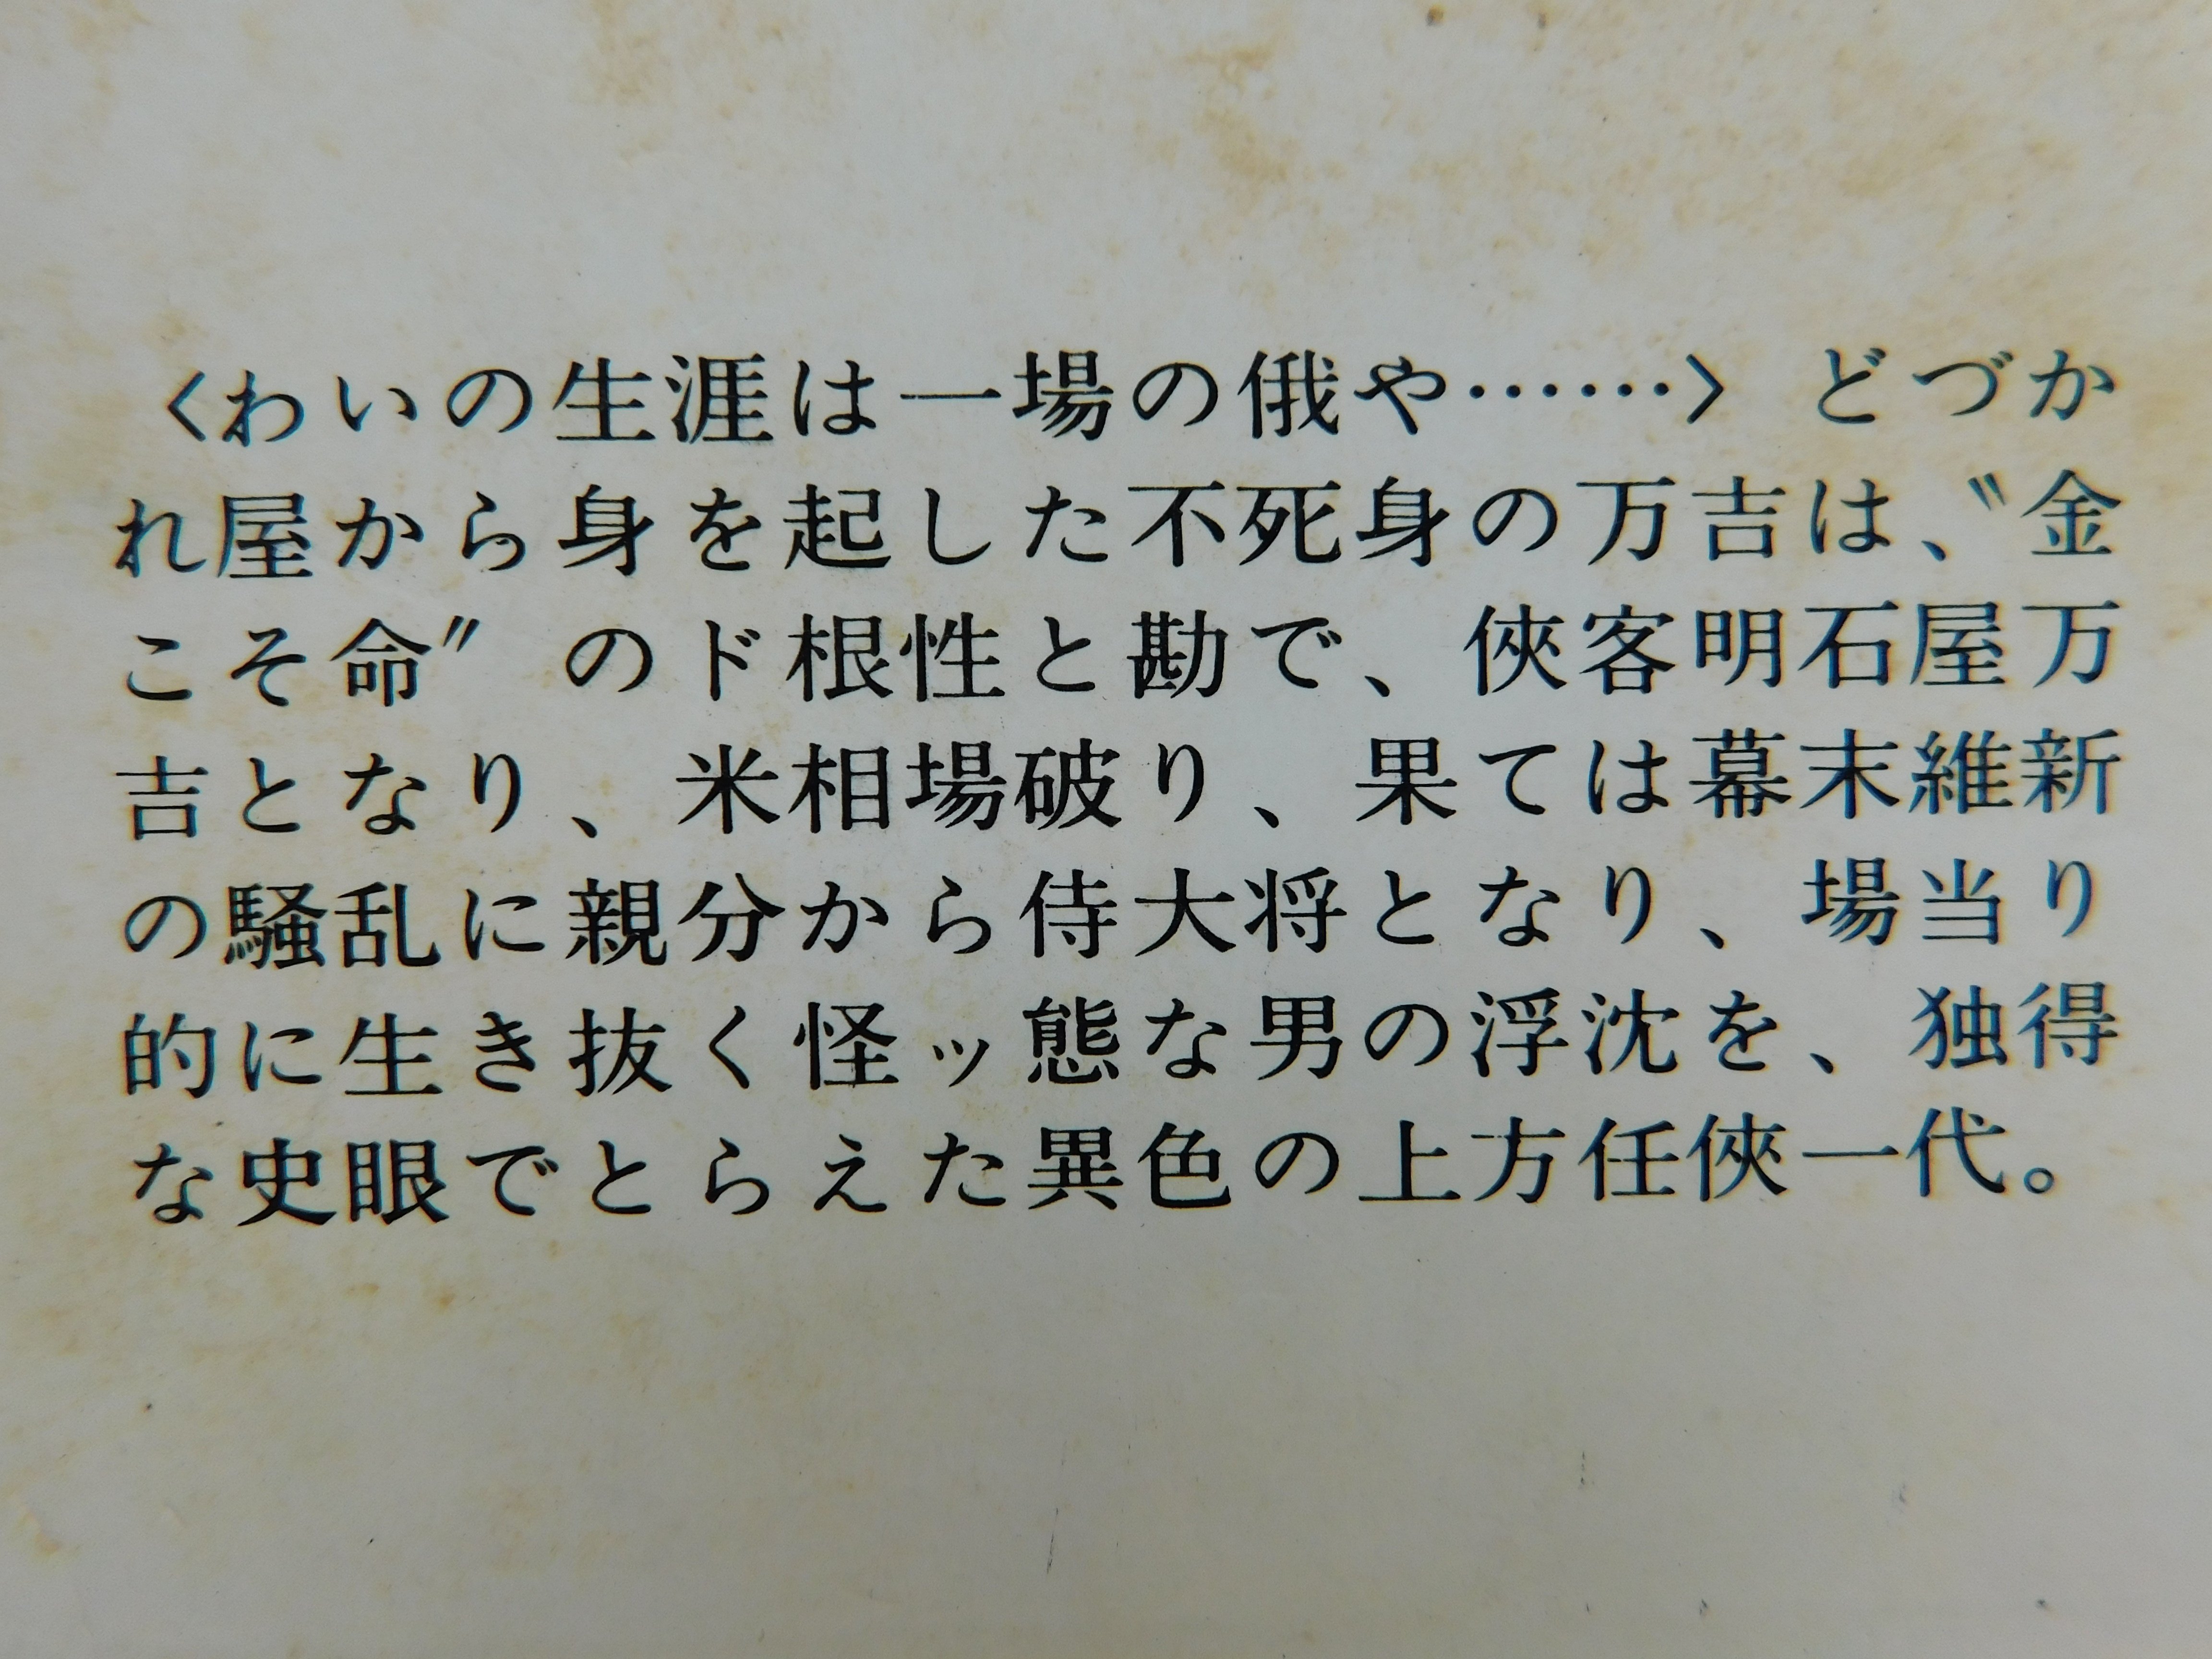 〈わいの生涯は一場の俄や……〉 どづか
れ屋から身を起した不死身の万吉は、〝金
こそ命〞のド根性と勘で、俠客明石屋万
吉となり、米相場破り、果ては幕末維新
の騒乱に親分から侍大将となり、場当り
的に生き抜く怪ッ態な男の浮沈を、独得
な史眼でとらえた異色の上方任俠一代。